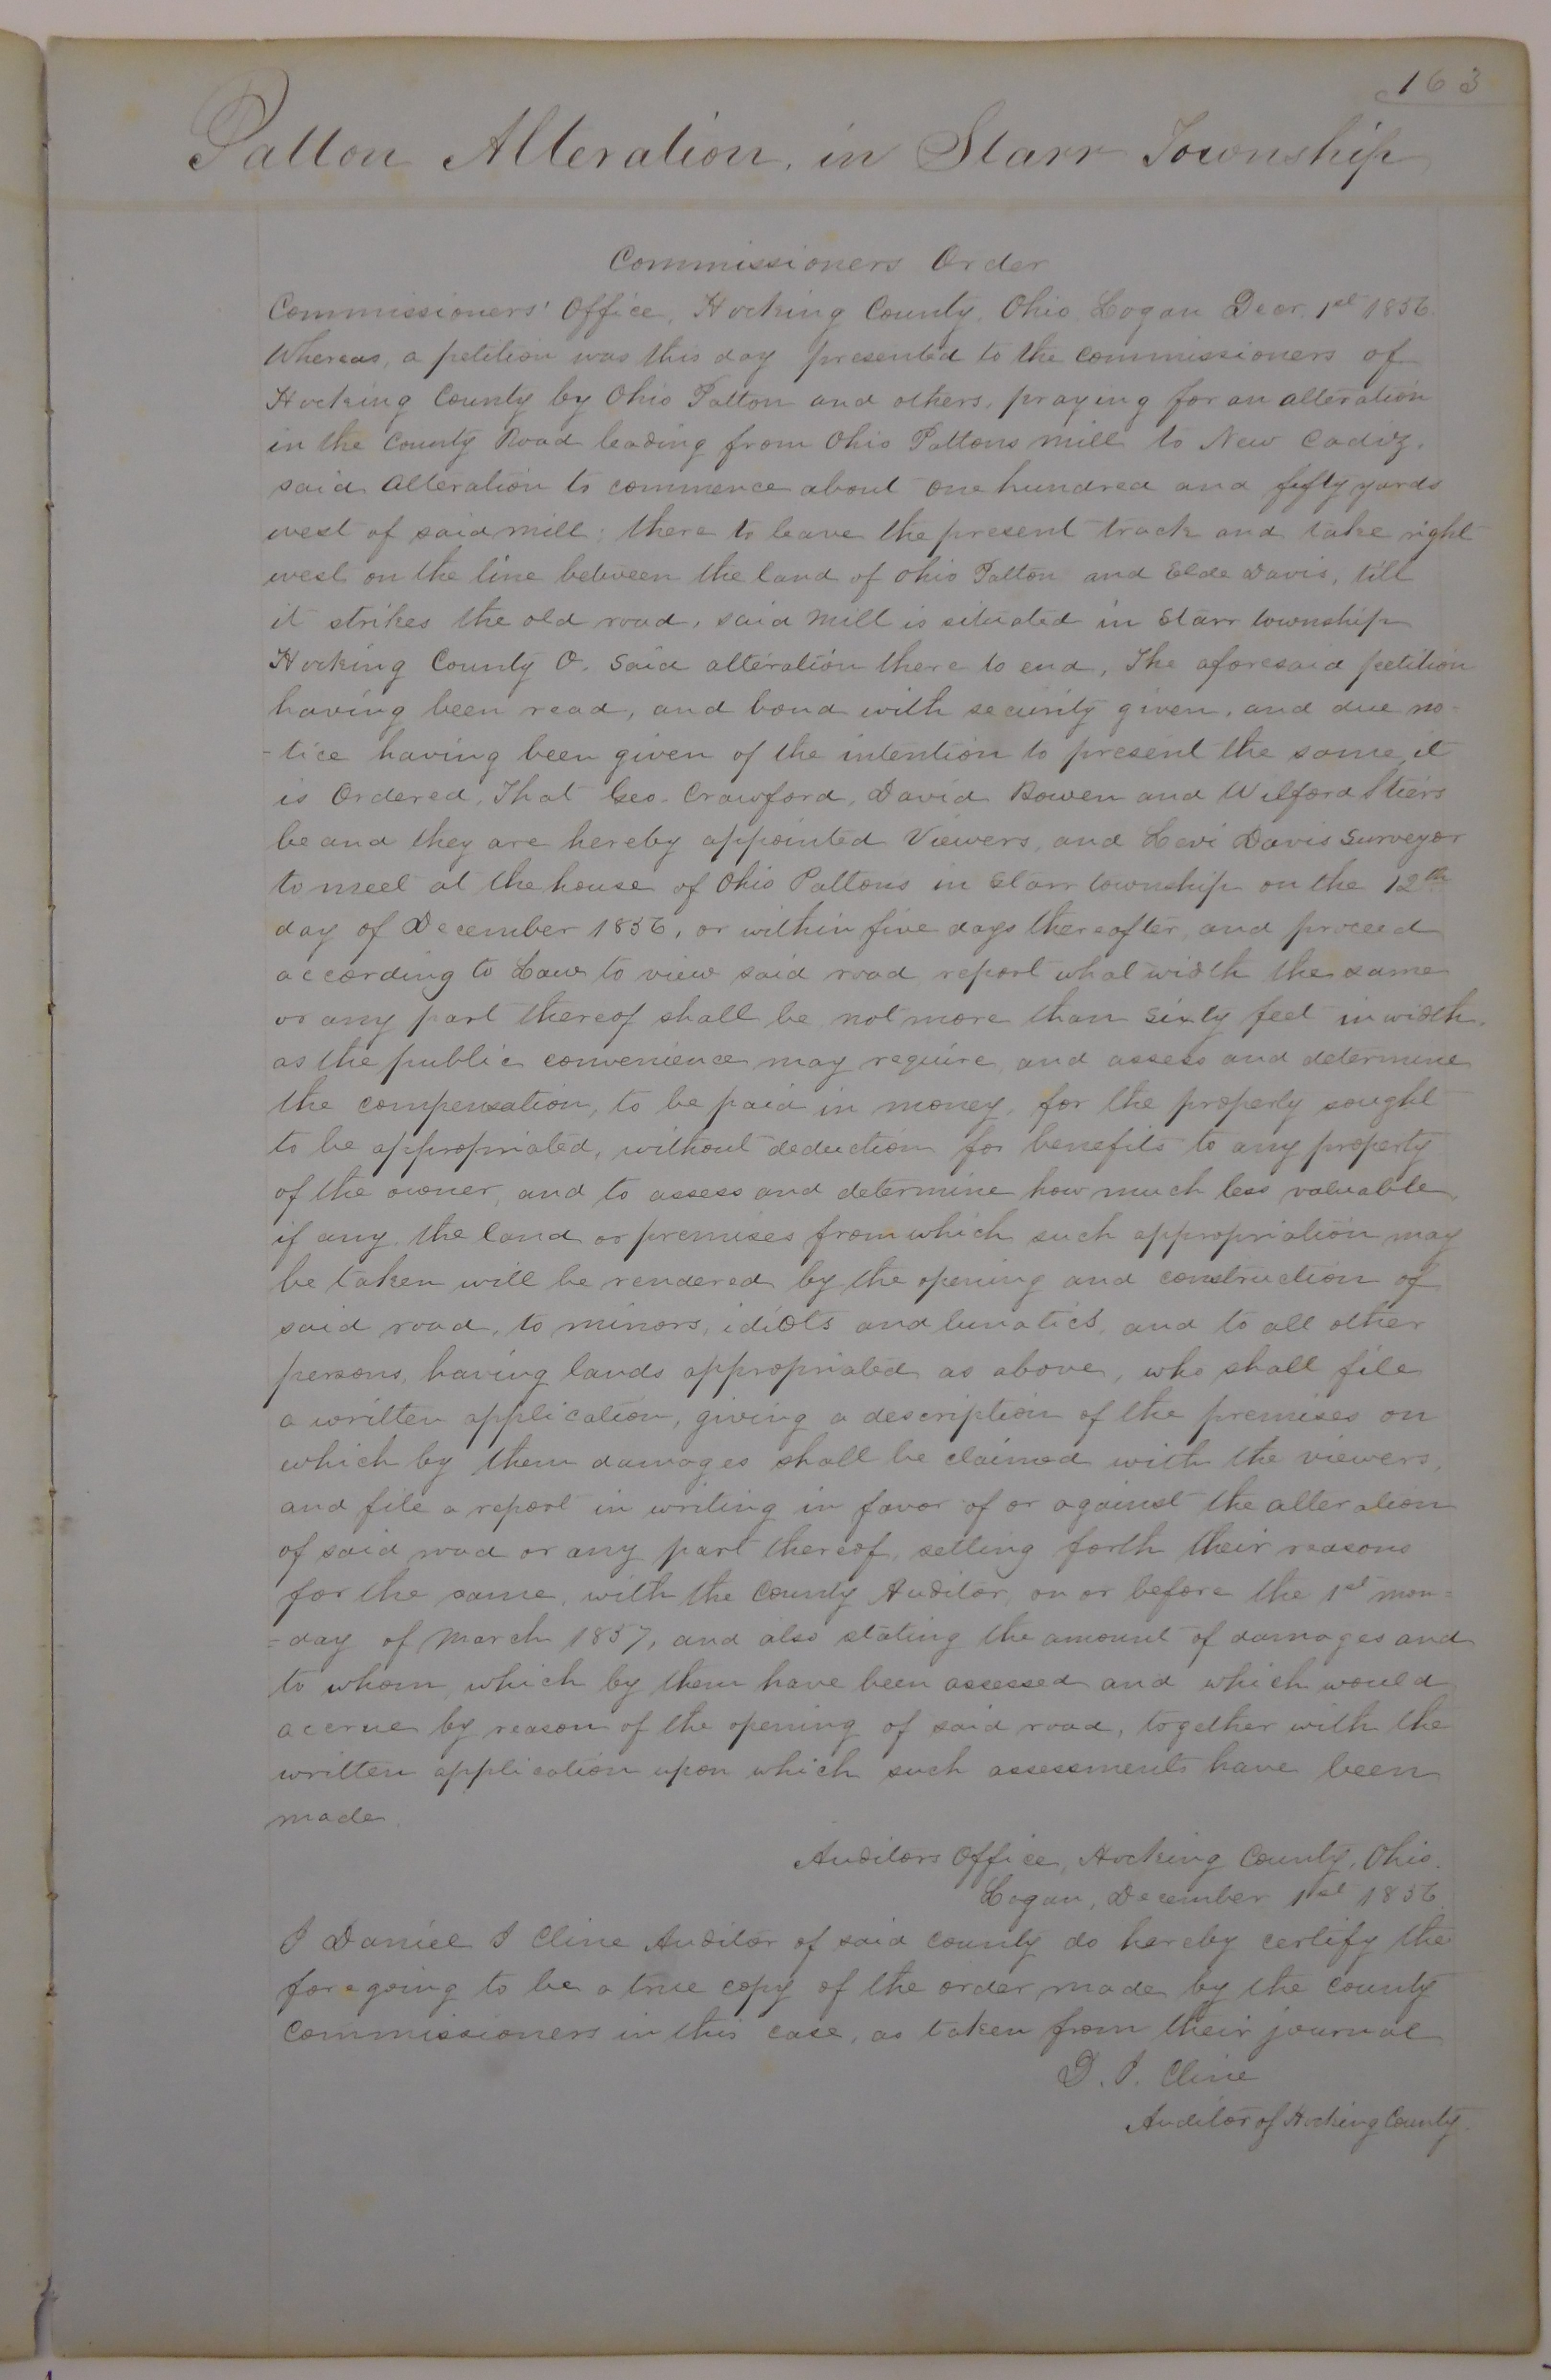 163
Patton Alteration, in Starr Township
Commissioners Order
Commissioners' Office, Hocking County, Ohio, Logan Decr. 1st 1856.
Whereas, a petition was this day presented to the commissioners of
Hocking County by Ohio Patton and others, praying for an alteration
in the County Road leading from Ohio Pattons mill to New Cadiz,
said alteration to commence about one hundred and fifty yards
west of said mill; there to leave the present track and take right
west on the line between the land of Ohio Patton and Elde Davis, till
it strikes the old road, said mill is situated in Starr township
Hocking County O. Said alteration there to end, The aforesaid petition
having been read, and bond with security given, and due no-
-tice having been given of the intention to present the same, it
is Ordered, That Geo. Crawford, David Bowen and Wilford Stiers
be and they are hereby appointed Viewers, and Levi Davis Surveyor
to meet at the house of Ohio Pattons in Starr township on the 12th
day of December 1856, or within five days thereafter, and proceed
according to Law to view said road, report what width the same
or any part thereof shall be, not more than sixty feet in width,
as the public convenience may require, and assess and determine
the compensation, to be paid in money, for the property sought
to be appropriated, without deduction for benefits to any property
of the owner, and to assess and determine how much less valuable,
if any, the land or premises from which such appropriation may
be taken will be rendered by the opening and construction of
said road, to minors, idiots and lunatics, and to all other
persons, having lands appropriated as above, who shall file
a written application, giving a description of the premises on
which by them damages shall be claimed with the viewers,
and file a report in writing in favor of or against the alteration
of said road or any part thereof, setting forth their reasons
for the same, with the County Auditor, on or before the 1st mon=
=day of March 1857, and also stating the amount of damages and
to whom, which by them have been assessed and which would
accrue by reason of the opening of said road, together with the
written application upon which such assessments have been
made.
Auditors Office, Hocking County, Ohio.
Logan, December 1st 1856.
I Daniel I Cline Auditor of said county do hereby certify the
foregoing to be a true copy of the order made by the county
commissioners in this case, as taken from their journal
D. I. Cline
Auditor of Hocking County.